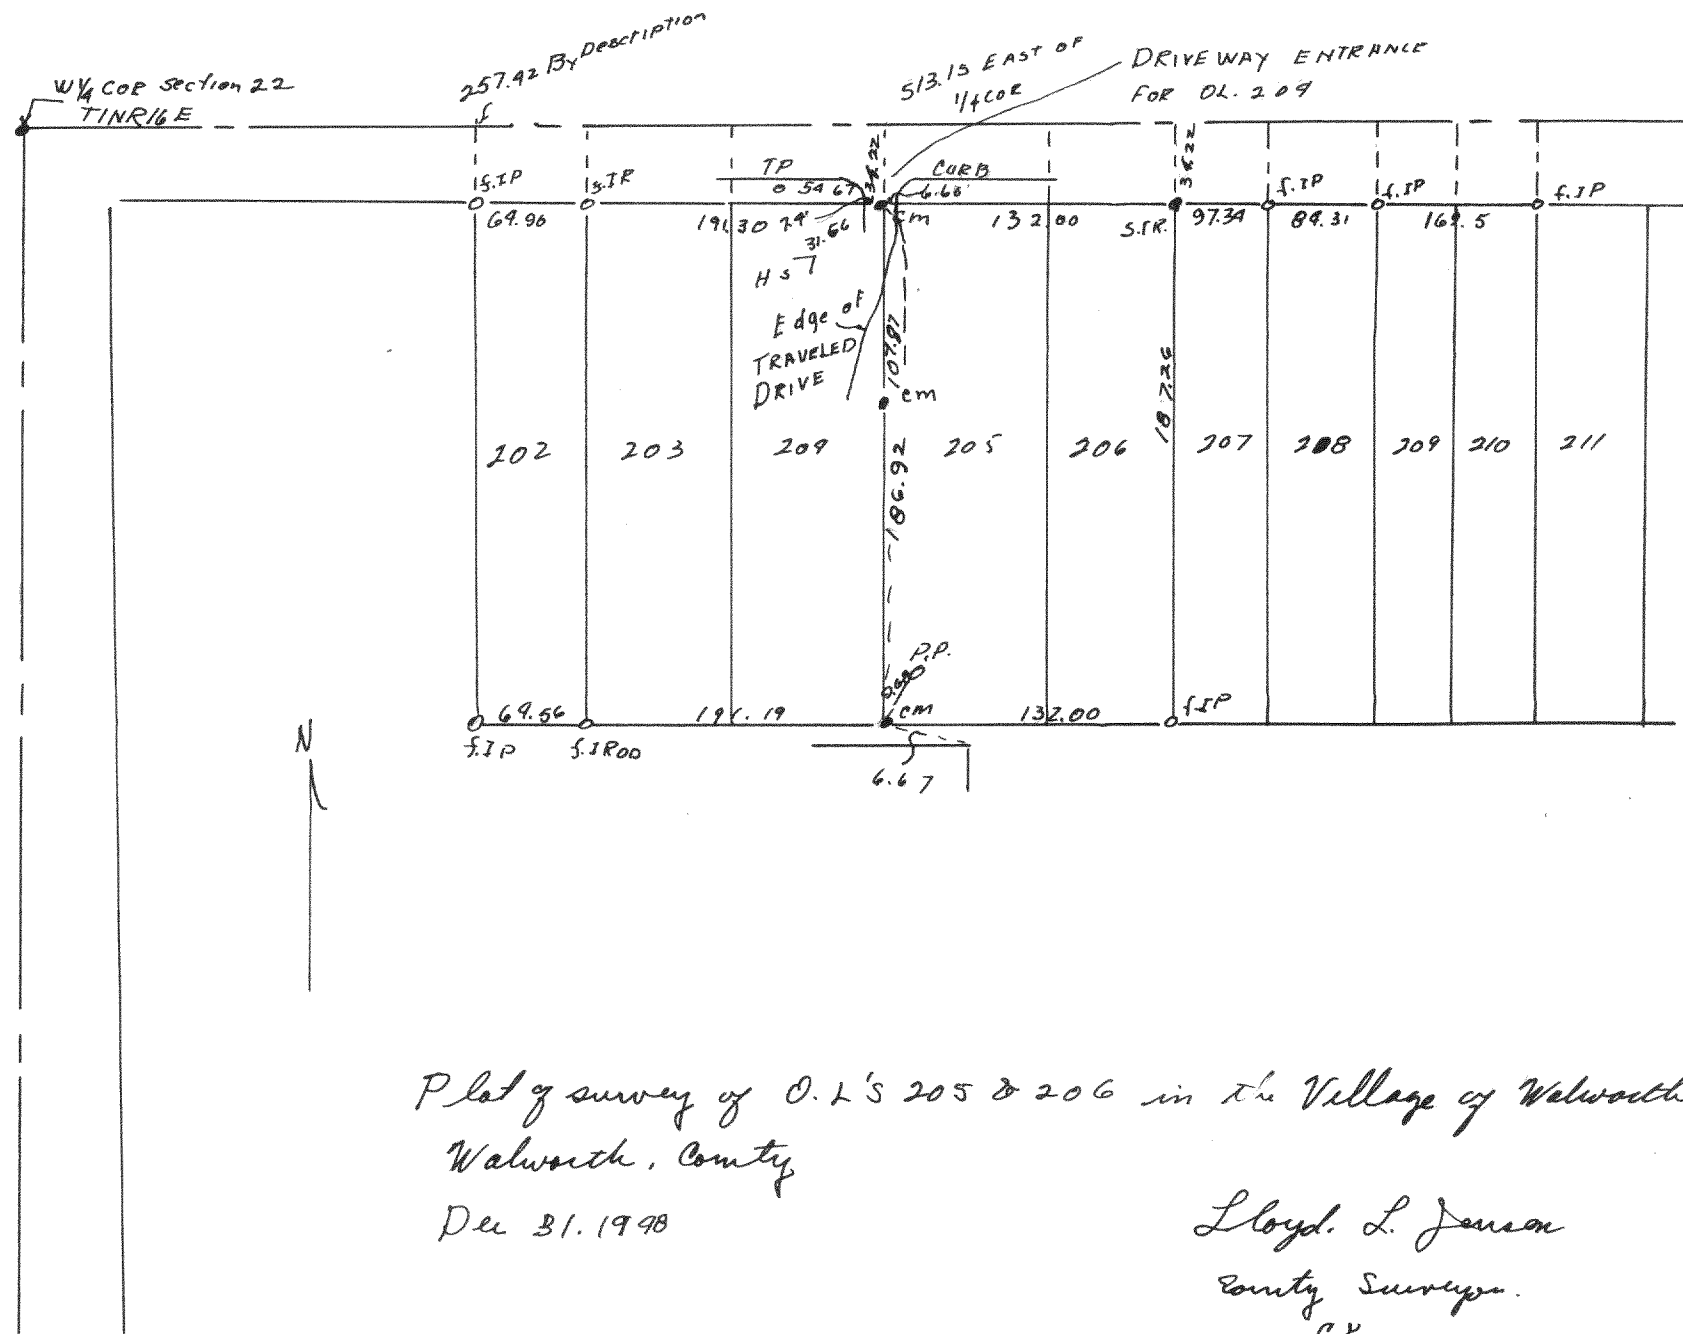 257.42 By Description
W 1/4 COR Section 22
T1NR16E
513.15 EAST OF
1/4 COR
DRIVEWAY ENTRANCE
FOR OL. 204
f.IP
s.IR
TP
0.54
34.22
CURB
6.68'
34.22
f.IP
f.IP
f.IP
64.90
191.30
31.66
cm
132.00
S.IR.
97.34
84.31
Edge of
TRAVELED
DRIVE
107.87
cm
187.26
202
203
204
205
206
207
208
209
210
211
186.92
P.P.
64.56
191.19
cm
132.00
f.IP
f.IP
f.IROD
6.67
N
Plat of survey of O.L'S 205 & 206 in the Village of Walworth
Walworth, County
Dec 31. 1948
Lloyd. L. Jensen
County Surveyor.